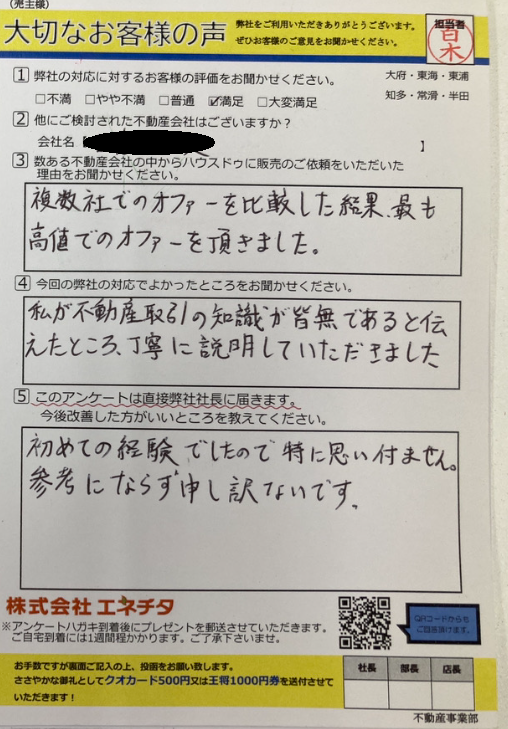 （売主様）
大切なお客様の声
弊社をご利用いただきありがとうございます。
ぜひお客様のご意見をお聞かせください。
担当者
白木
1 弊社の対応に対するお客様の評価をお聞かせください。
大府・東海・東浦
知多・常滑・半田
□不満 □やや不満 □普通 ☑満足 □大変満足
2 他にご検討された不動産会社はございますか？
会社名【 】
3 数ある不動産会社の中からハウスドゥに販売のご依頼をいただいた
理由をお聞かせください。
複数社でのオファーを比較した結果、最も
高値でのオファーを頂きました。
4 今回の弊社の対応でよかったところをお聞かせください。
私が不動産取引の知識が皆無であると伝
えたところ、丁寧に説明していただきました
5 このアンケートは直接弊社社長に届きます。
今後改善した方がいいところを教えてください。
初めての経験でしたので特に思い付ません。
参考にならず申し訳ないです。
株式会社エネチタ
※アンケートハガキ到着後にプレゼントを郵送させていただきます。
ご自宅到着には1週間程かかります。ご了承下さいませ。
QRコードからも
ご回答頂けます。
お手数ですが裏面ご記入の上、投函をお願い致します。
ささやかな御礼としてクオカード500円又は王将1000円券を送付させて
いただきます！
社長 部長 店長
不動産事業部